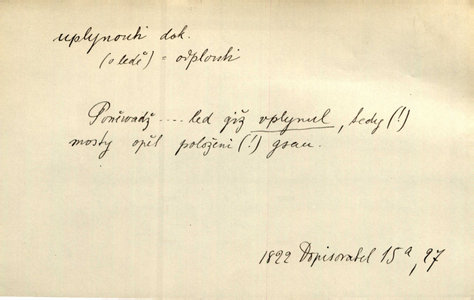 uplynouti dok.
(o ledě) = odplouti
Poněwadž .... led giž vplynul, tedy (!)
mosty opět položeni (!) gsau.
1822 Dopisovatel 15a, 27